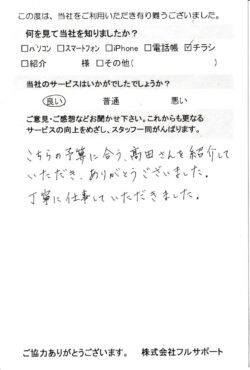 この度は、当社をご利用いただき有り難うございました。
何を見て当社を知りましたか?
□パソコン □スマートフォン □iPhone □電話帳 ☑チラシ
□紹介 様 □その他( )
当社のサービスはいかがでしたでしょうか?
良い 普通 悪い
ご意見・ご感想などお聞かせ下さい。これからも更なる
サービスの向上をめざし、スタッフ一同がんばります。
こちらの予算に合う、髙田さんを紹介して
いただき、ありがとうございました。
丁寧に仕事していただきました。
ご協力ありがとうございます。 株式会社フルサポート